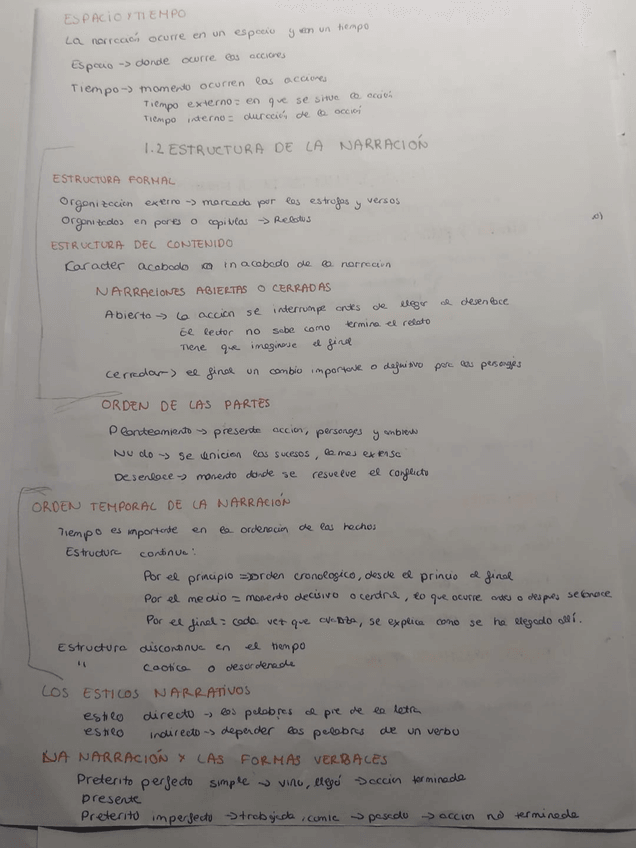 ESPACIO Y TIEMPO
La narración ocurre en un espacio y en un tiempo
Espacio → donde ocurre las acciones
Tiempo → momento ocurren las acciones
Tiempo externo = en que se situa la acción
Tiempo interno = duracción de la acción
1.2 ESTRUCTURA DE LA NARRACIÓN
ESTRUCTURA FORMAL
Organización externo → marcada por las estrofas y versos
Organizados en partes o capitulos → Relatos
ESTRUCTURA DEL CONTENIDO
Karacter acabado o inacabado de la narracion
NARRACIONES ABIERTAS O CERRADAS
Abierto → La acción se interrumpe antes de llegar al desenlace
El lector no sabe como termina el relato
Tiene que imaginarse el final
Cerrada → el final un cambio importante o definitivo para los personajes
ORDEN DE LAS PARTES
Planteamiento → presenta accion, personajes y ambiente
Nudo → se inician los sucesos, la mas extensa
Desenlace → momento donde se resuelve el conflicto
ORDEN TEMPORAL DE LA NARRACIÓN
Tiempo es importante en la ordenacion de los hechos
Estructura continua:
Por el principio => orden cronologico, desde el principio al final
Por el medio = momento decisivo o central, lo que ocurre antes o despues se conoce
Por el final = cada vez que avanza, se explica como se ha llegado allí.
Estructura discontinua en el tiempo
" Caotica o desordenada
LOS ESTILOS NARRATIVOS
estilo directo → las palabras al pie de la letra
estilo indirecto → depender las palabras de un verbo
LA NARRACIÓN Y LAS FORMAS VERBALES
Preterito perfecto simple → vino, llegó → accion terminada
Presente
Preterito imperfecto → trabajada, comie → pasado → accion no terminada